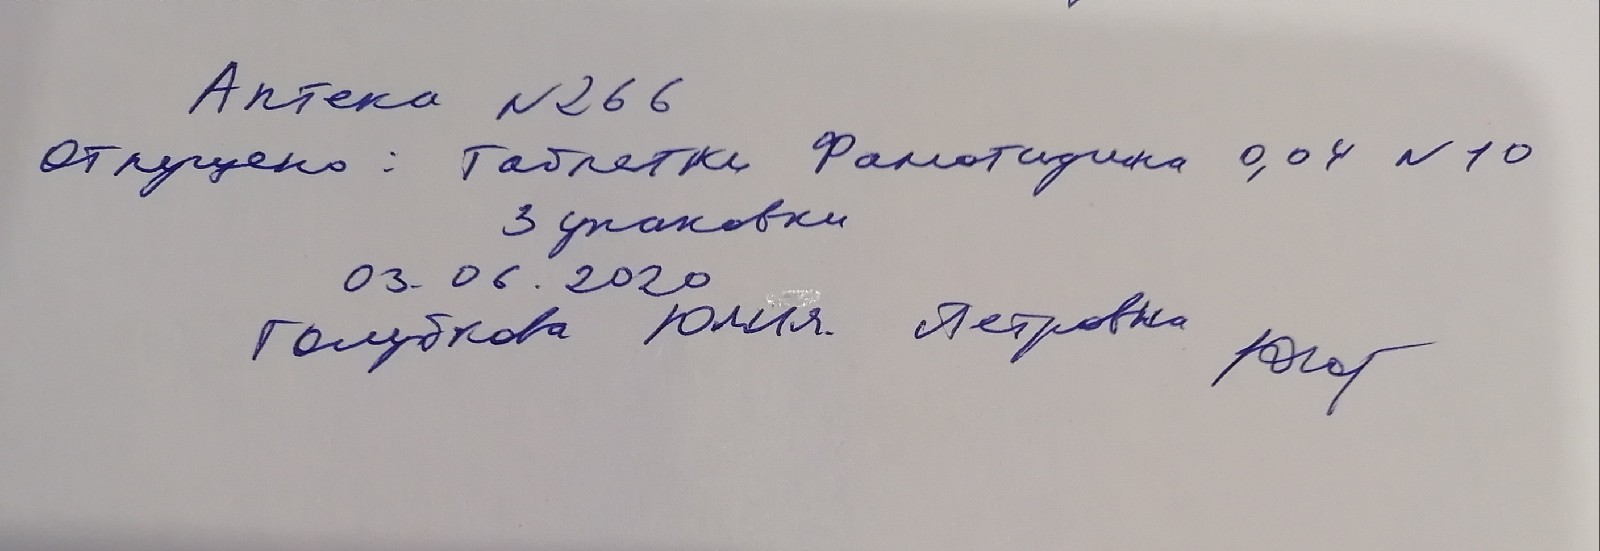 Аптека №266
Отпущено: Таблетки Фамотидина 0,04 №10
3 упаковки
03.06.2020
Голубкова Юлия Петровна